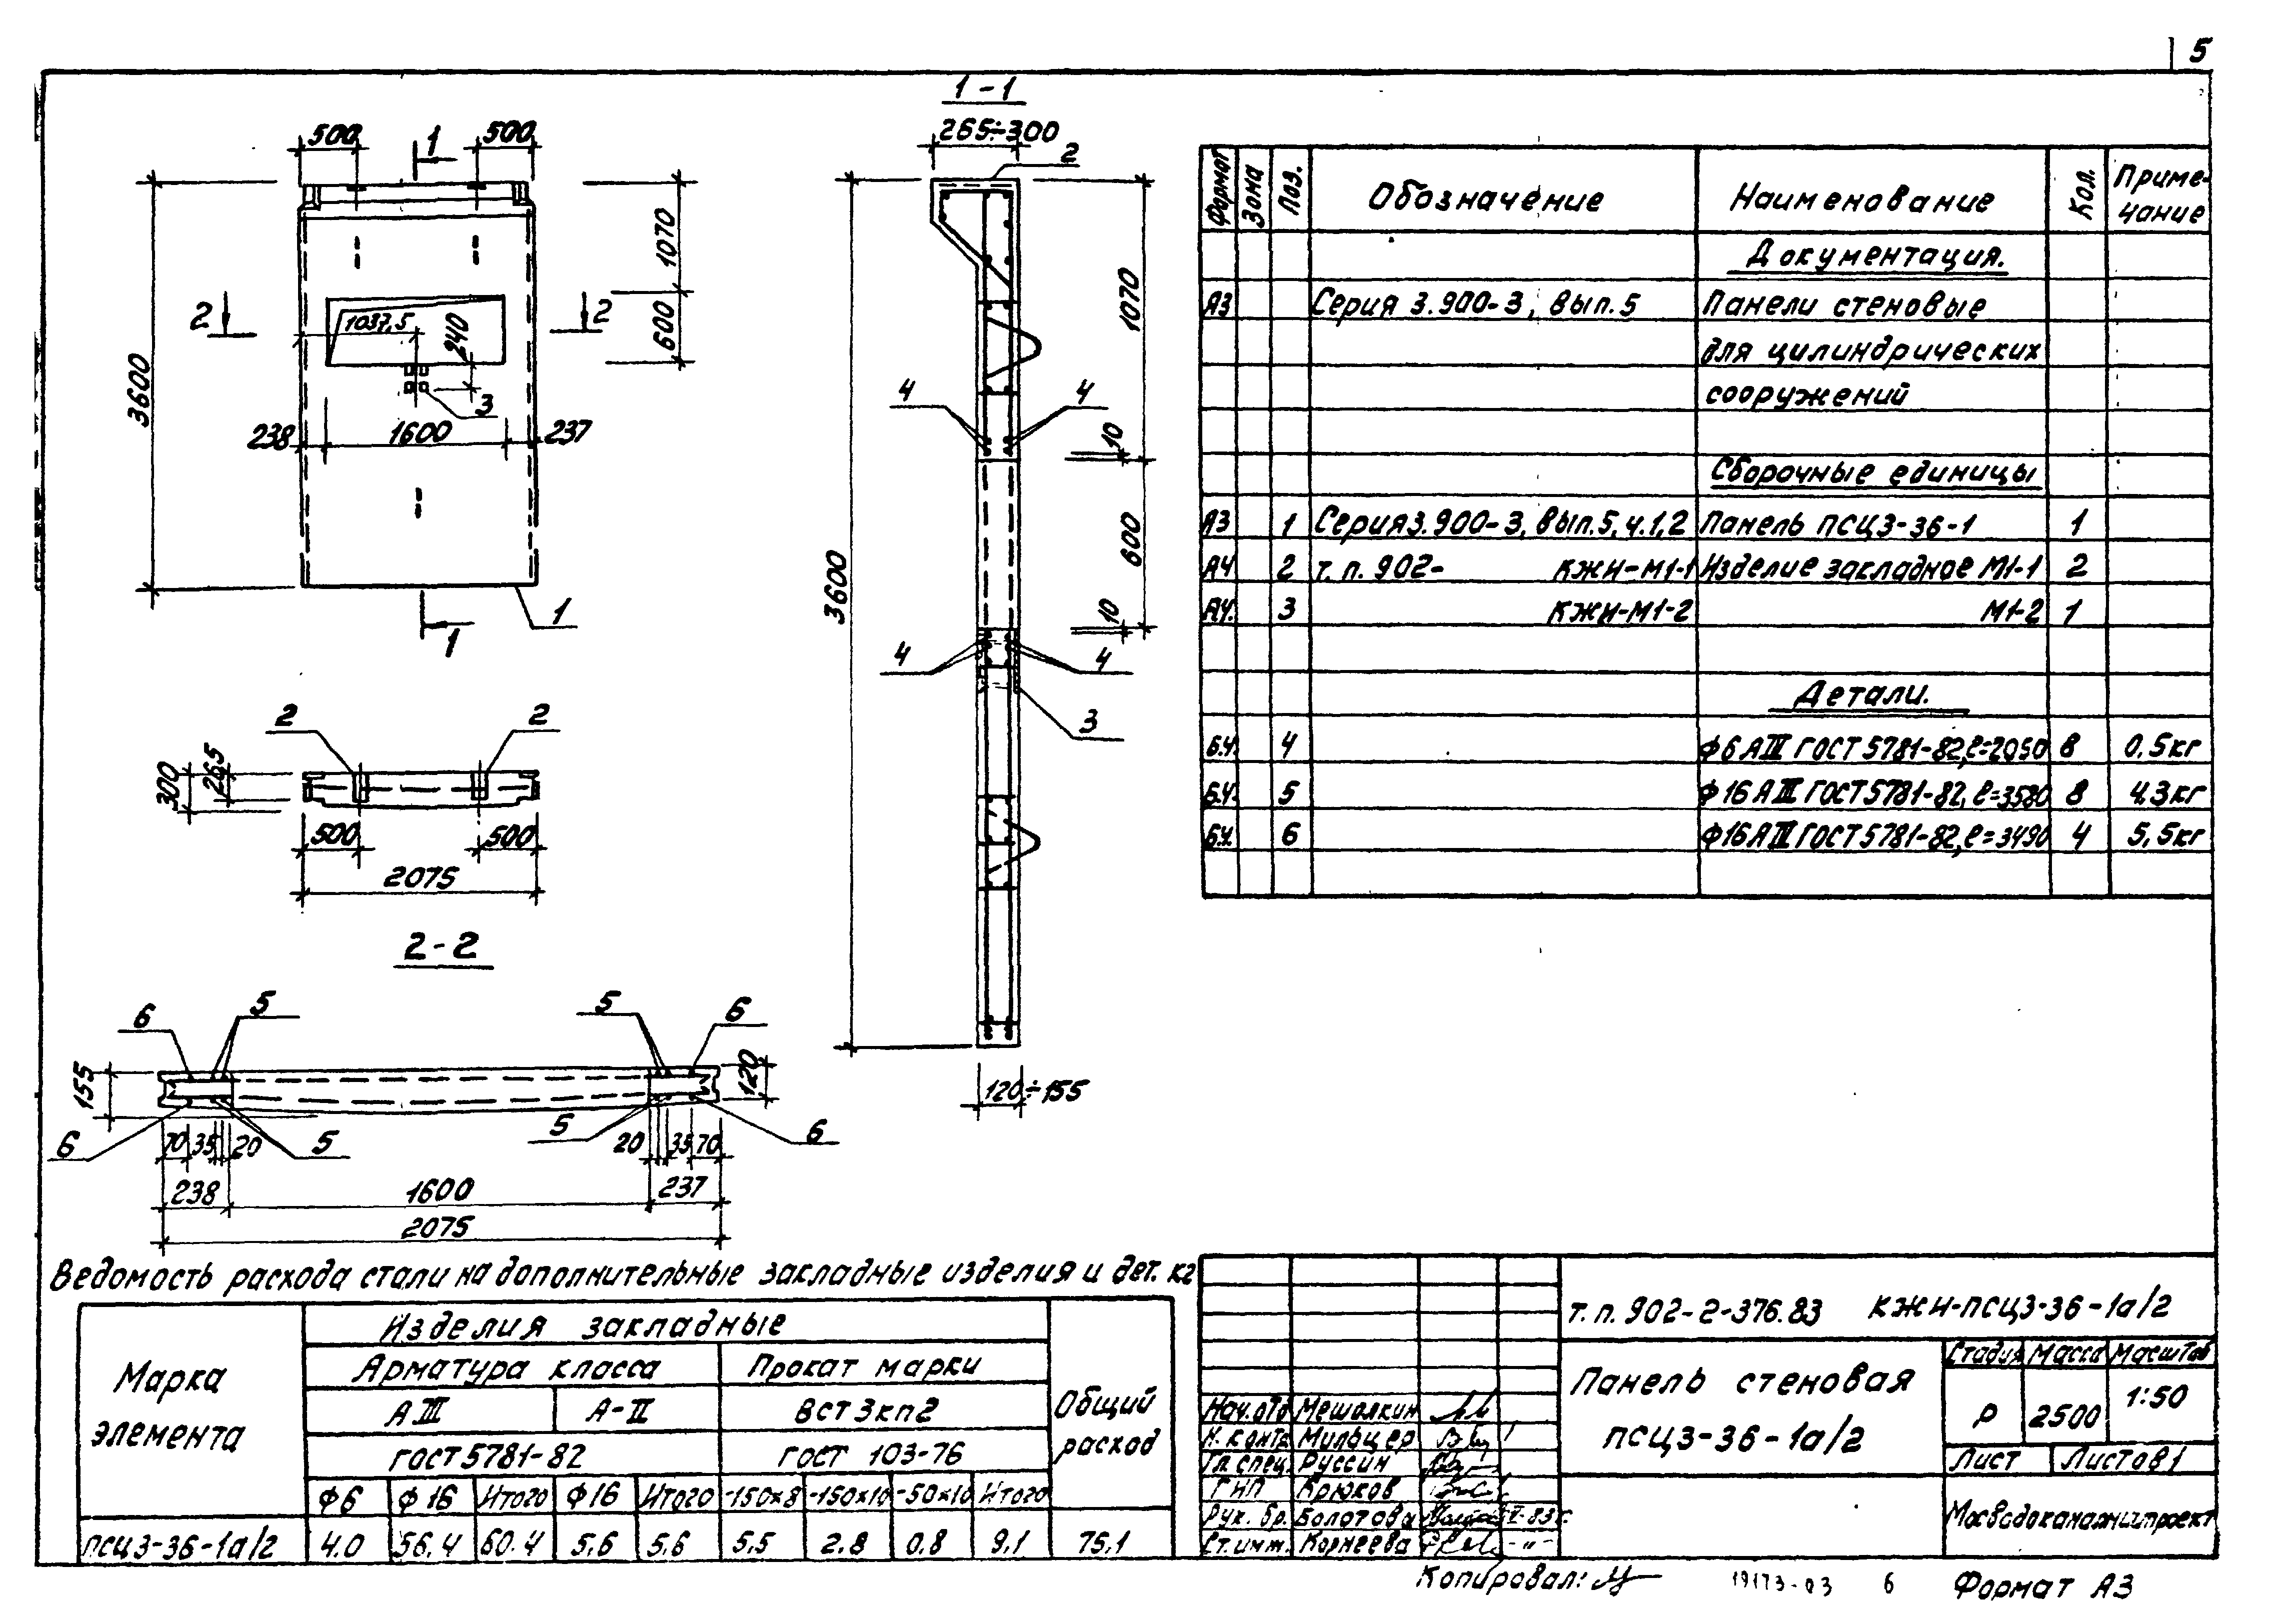 5
500
500
1
3600
1070
600
2
2
1037,5
240
3
238
1600
237
1
1
1-1
265÷300
2
1070
4
4
10
600
3600
10
4
4
3
120÷155
2
2
300
265
500
500
2075
2-2
6
5
5
6
155
120
6
5
5
6
70
35
20
20
35
70
238
1600
237
2075
Формат
Зона
Поз.
Обозначение
Наименование
Кол.
Приме-
чание
Документация.
А3 Серия 3.900-3, вып.5 Панели стеновые
для цилиндрических
сооружений
Сборочные единицы
А3 1 Серия 3.900-3, вып.5, ч.1,2 Панель ПСЦ3-36-1 1
А4 2 т.п. 902- КЖИ-М1-1 Изделие закладное М1-1 2
А4. 3 КЖИ-М1-2 М1-2 1
Детали.
Б.Ч. 4 ф6 АIII ГОСТ 5781-82, ℓ=2050 8 0.5кг
Б.Ч. 5 ф16 АIII ГОСТ 5781-82, ℓ=3580 8 4.3кг
Б.Ч. 6 ф16 АIII ГОСТ 5781-82, ℓ=3490 4 5,5кг
Ведомость расхода стали на дополнительные закладные изделия и дет. кг
Марка
элемента
Изделия закладные
Арматура класса Прокат марки
АIII А-II ВСт3кп2
ГОСТ 5781-82 ГОСТ 103-76
Общий
расход
ф6 ф16 Итого ф16 Итого -150×8 -150×10 -50×10 Итого
ПСЦ3-36-1а/2 4.0 56.4 60.4 5,6 5.6 5.5 2.8 0.8 9,1 75,1
т.п. 902-2-376.83 КЖИ-ПСЦ3-36-1а/2
Панель стеновая
ПСЦ3-36-1а/2
Стадия Масса Масштаб
Р 2500 1:50
Лист Листов 1
Мосводоканалниипроект
Нач.отд Мешалкин
Н. контр Мильцер
Гл. спец. Руссин
ГИП Крюков
Рук. бр. Болотова
Ст. инж. Корнеева
Копировал:
19173-03 6
Формат А3